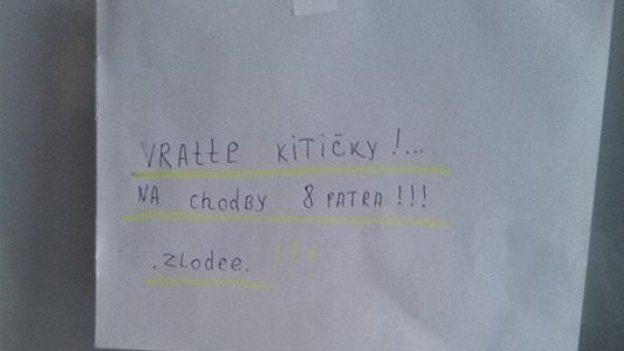 VRAtte KiTiČKY!...
NA chodBY 8 PATRA!!!
.ZLodee. !!!